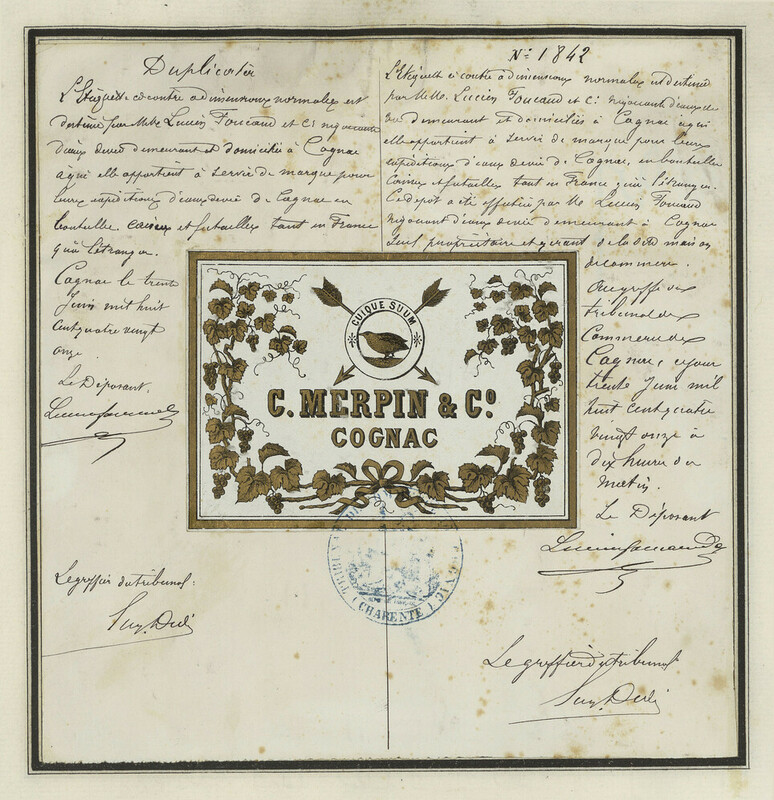 Duplicata
L'Etiquette ci contre à dimensions normales est
destinée par MMrs Lucien Foucaud et Cie négociants
d'eaux devie demeurant et domiciliés à Cognac
a qui elle appartient à servir de marque pour
leurs expéditions d'eaux devie de Cognac en
bouteilles, caisses et futailles tant en France
qu'à l'étranger.
Cognac le trente
Juin mil huit
cent quatre vingt
onze.
Le Déposant.
Lucien Foucaud
Le greffier du tribunal:
No 1842
L'Etiquette ci contre à dimensions normales est destinée
par MMrs Lucien Foucaud et Cie négociants d'eaux de
vie demeurant et domiciliés à Cognac a qui
elle appartient à servir de marque pour leurs
expéditions d'eaux devie de Cognac, en bouteilles
caisses et futailles tant en France qu'à l'étranger.
Ce depot a été effectué par Mr Lucien Foucaud
négociant d'eaux devie demeurant à Cognac
seul propriétaire et gérant de la dite maison
de commerce.
Au greffe du
tribunal de
Commerce de
Cognac, ce jour
trente Juin mil
huit cent quatre
vingt onze à
dix heures du
matin.
Le Déposant
Lucien Foucaud
Le greffier du tribunal
CUIQUE SUUM
C. MERPIN & Co.
COGNAC
TRIBUNAL DE
COGNAC
(CHARENTE)